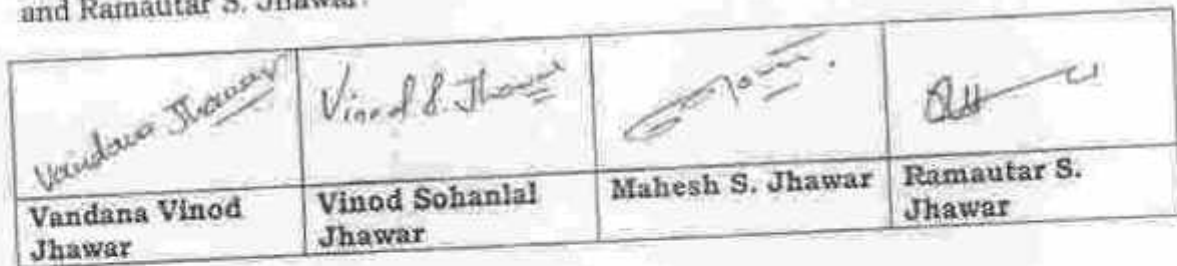 and Ramautar S. Jhawar.
Vandana Jhawar
Vinod S. Jhawar
Vandana Vinod
Jhawar
Vinod Sohanlal
Jhawar
Mahesh S. Jhawar
Ramautar S.
Jhawar